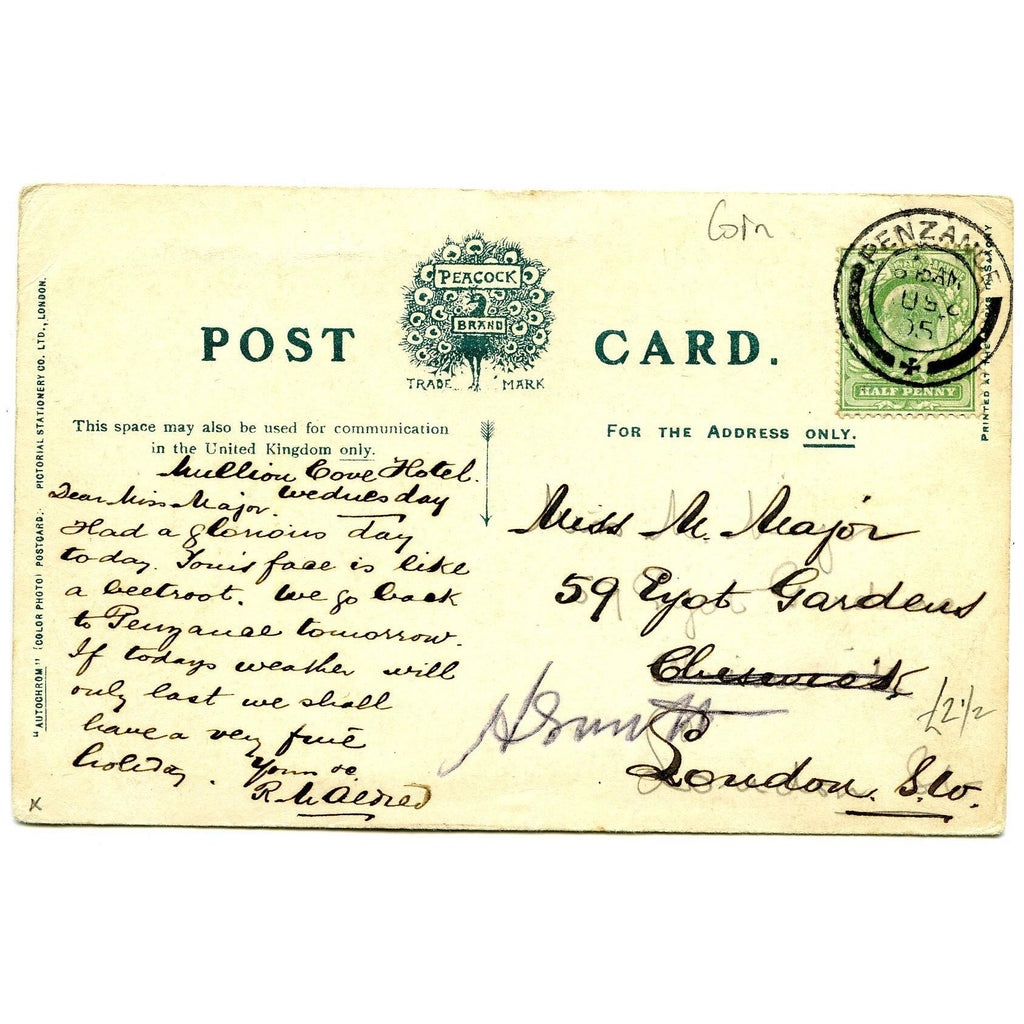 Corn
PEACOCK
BRAND
TRADE MARK
POST CARD.
PENZANCE
25
HALF PENNY
PRINTED AT THE
"AUTOCHROM" (COLOR PHOTO) POSTCARD. PICTORIAL STATIONERY CO. LTD., LONDON.
This space may also be used for communication
in the United Kingdom only.
FOR THE ADDRESS ONLY.
Mullion Cove Hotel.
Wednesday
Dear Miss Major.
Had a glorious day
today. face is like
a beetroot. We go back
to Penzance tomorrow.
If todays weather will
only last we shall
have a very fine
holiday. Yours
R M Aldred
Miss M. Major
59 Eyot Gardens
Chiswick
London. S.W.
£2½
x